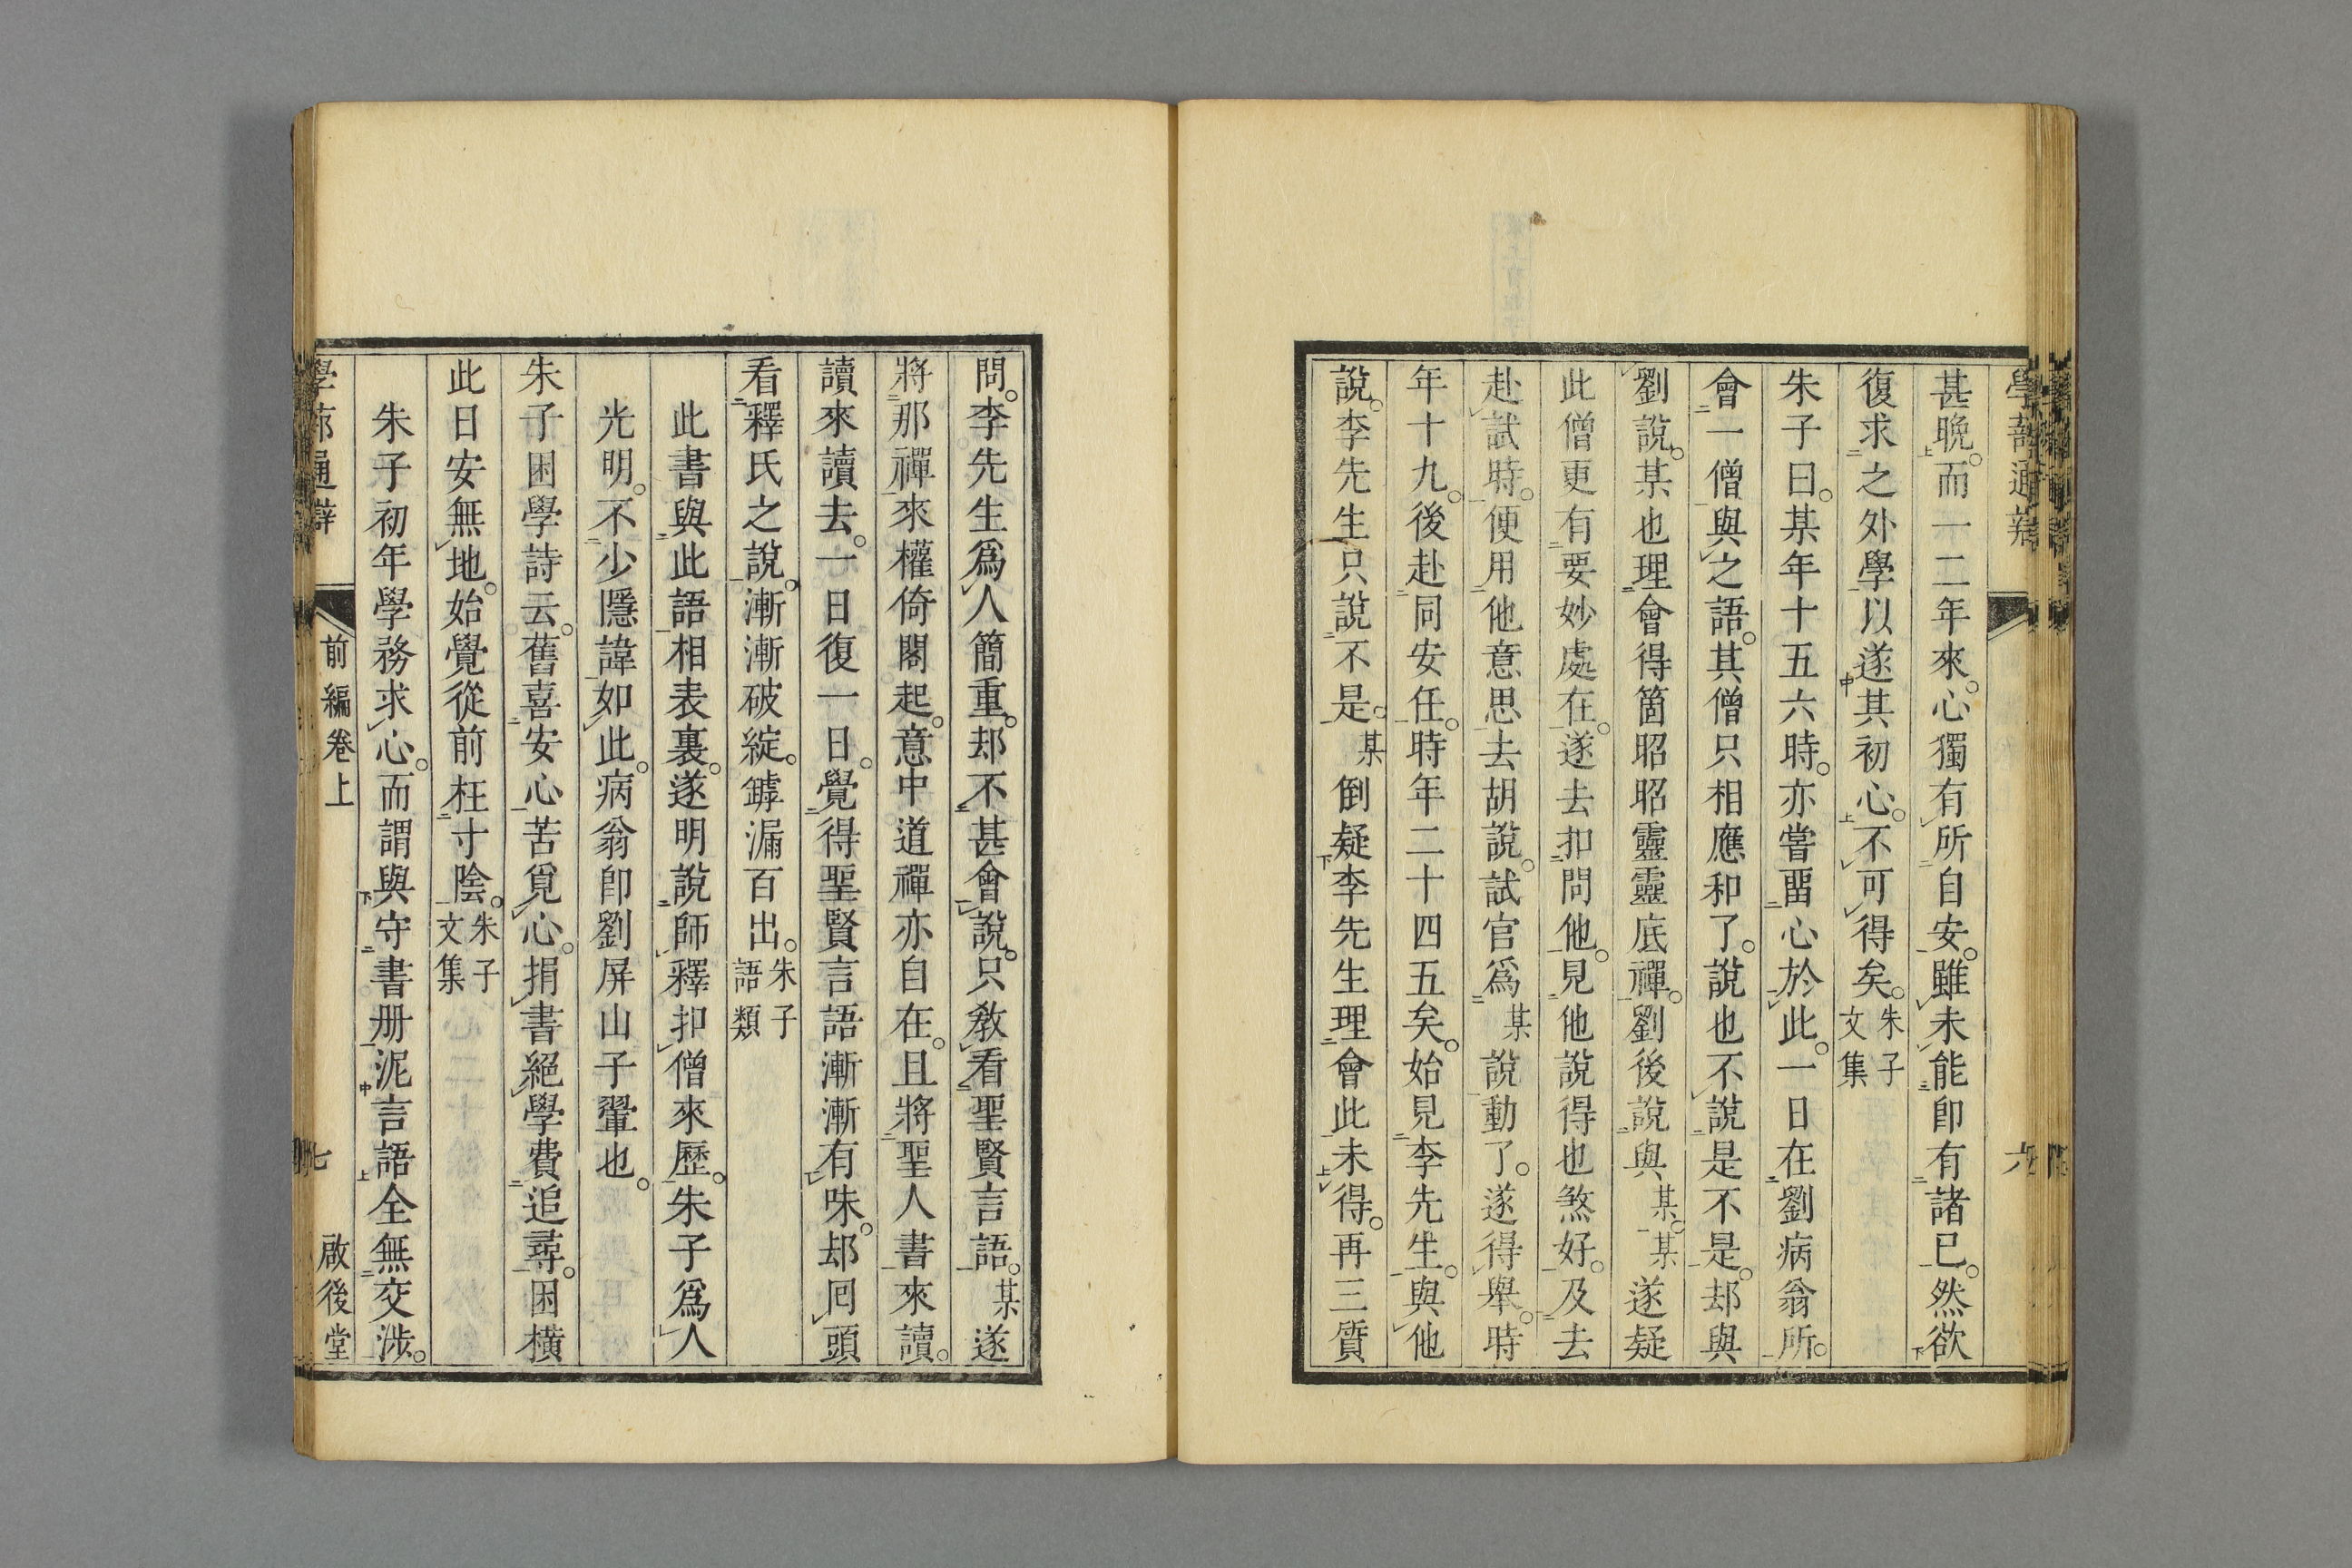 學蔀通辨
六
甚晩。而一二年來。心獨有所自安。雖未能卽有諸已。然欲
復求之外學以遂其初心。不可得矣。朱子文集
朱子曰。某年十五六時。亦嘗畱心於此。一日在劉病翁所。
會一僧與之語。其僧只相應和了。說也不說是不是。却與
劉說。某也理會得箇昭昭靈靈底禪。劉後說與某。某遂疑
此僧更有要妙處在。遂去扣問他。見他說得也煞好。及去
赴試時。便用他意思去胡說。試官爲某說動了。遂得舉。時
年十九。後赴同安任。時年二十四五矣。始見李先生。與他
說。李先生只說不是。某倒疑李先生理會此未得。再三質
問。李先生爲人簡重。却不甚會說。只敎看聖賢言語。某遂
將那禪來權倚閣起。意中道禪亦自在。且將聖人書來讀。
讀來讀去。一日復一日。覺得聖賢言語漸漸有味。却囘頭
看釋氏之說。漸漸破綻。罅漏百出。朱子語類
此書與此語相表裏。遂明說師釋扣僧來歷。朱子爲人
光明。不少隱諱如此。病翁卽劉屏山子翬也。
朱子困學詩云。舊喜安心苦覓心。捐書絕學費追尋。困橫
此日安無地。始覺從前枉寸陰。朱子文集
朱子初年學務求心。而謂與守書册泥言語全無交涉。
學蔀通辨
前編卷上
七
啟後堂